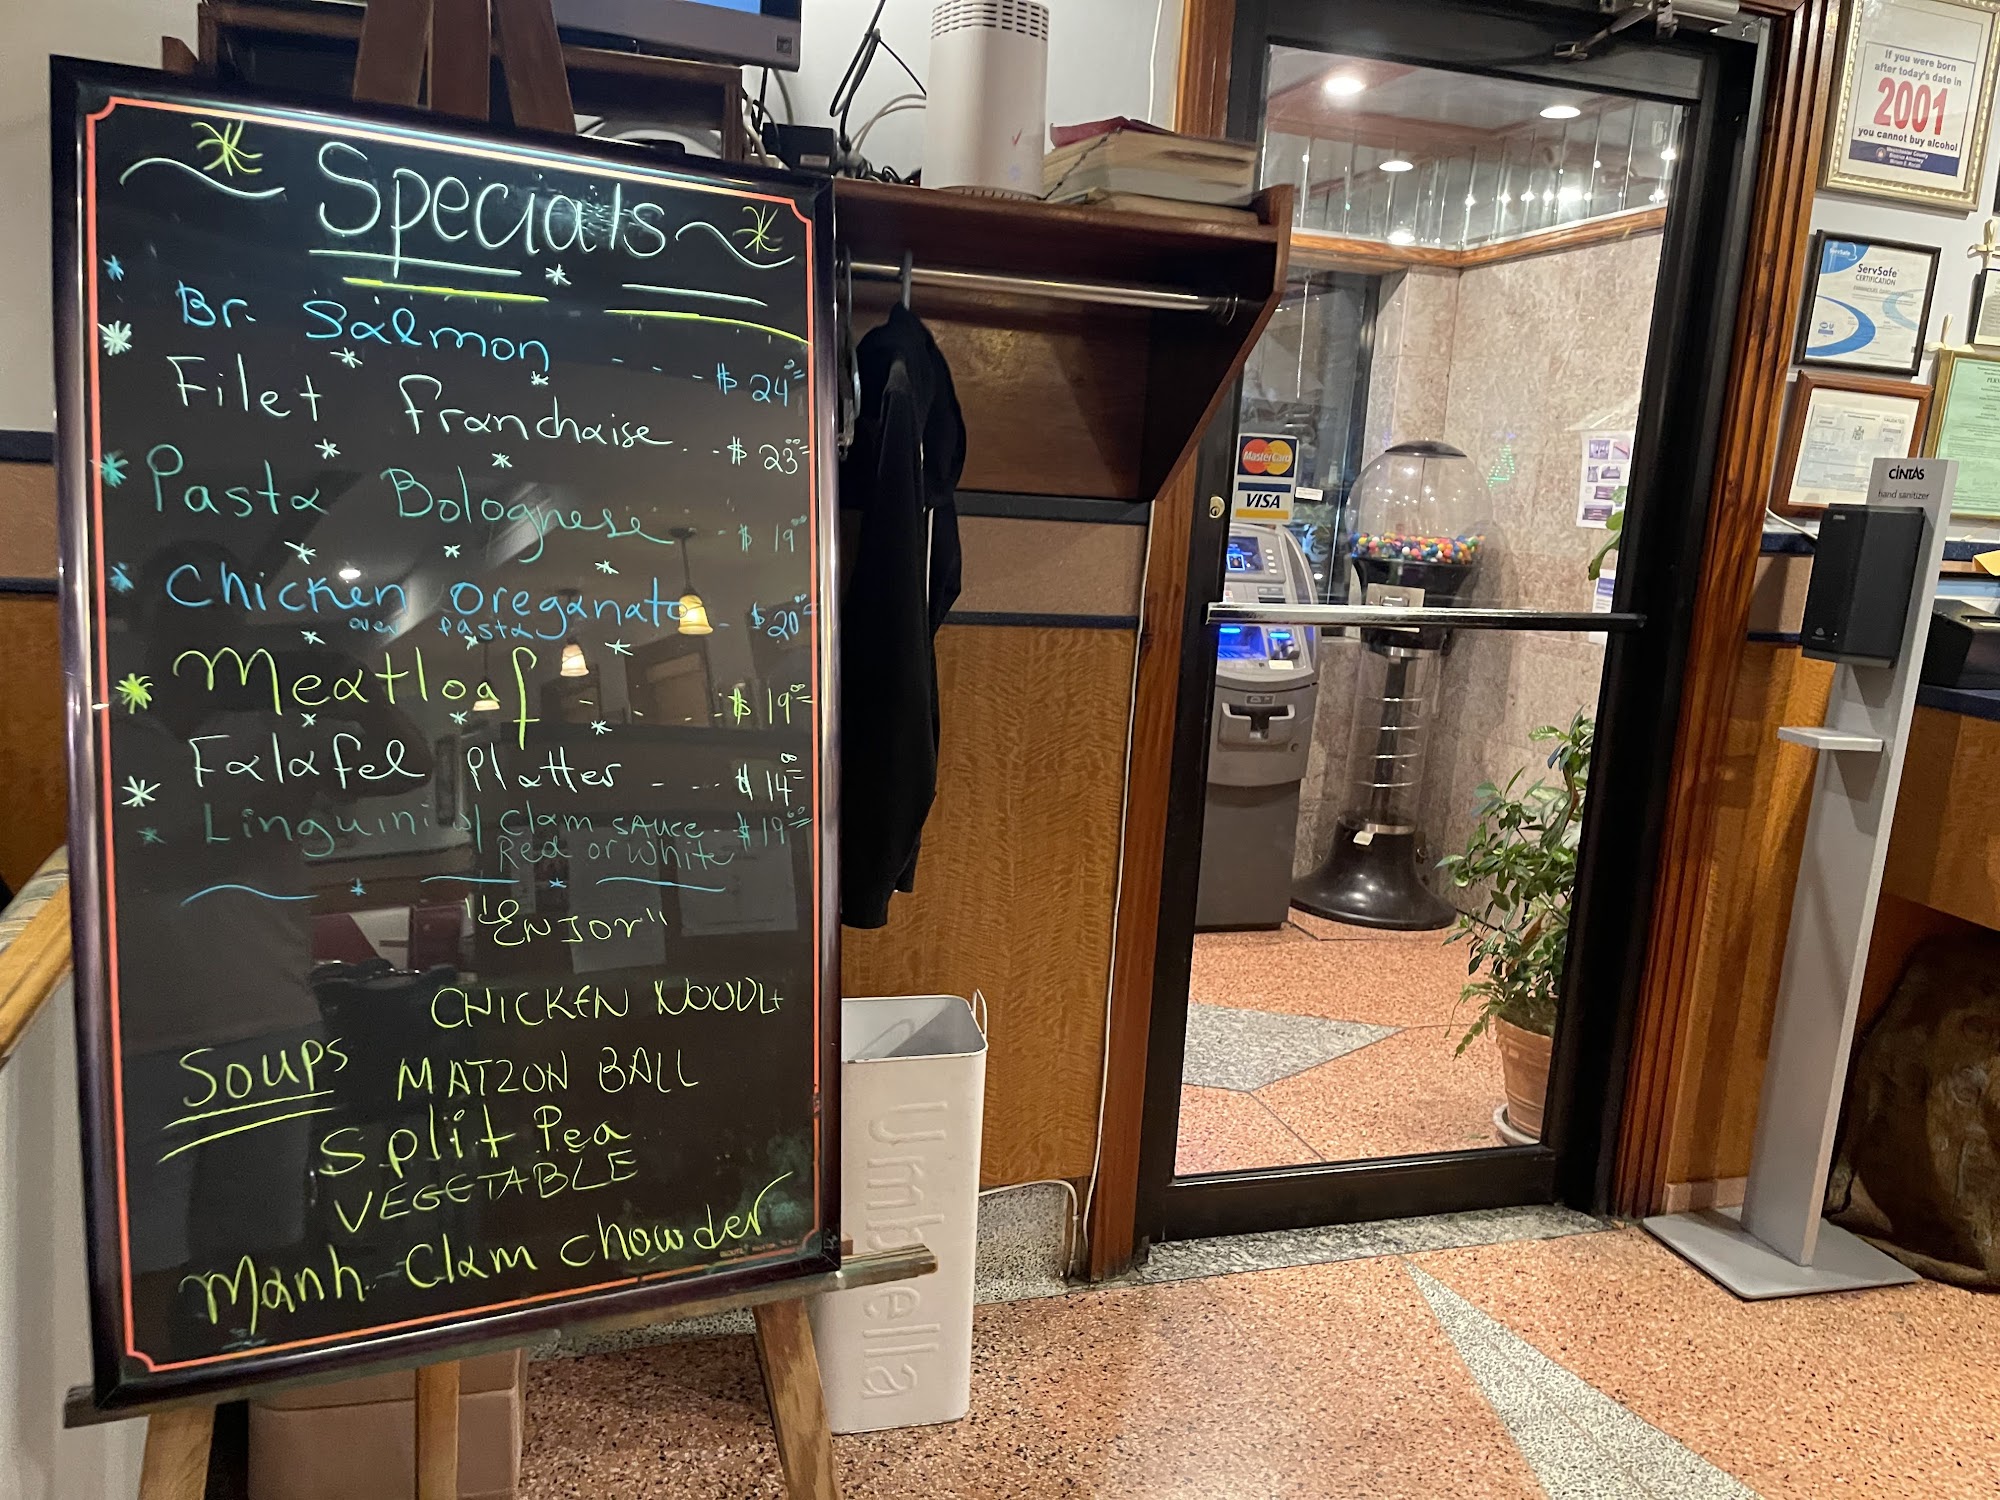 Specials
Br. Salmon - - - $ 24
Filet Franchaise . . - $ 23⁰⁰
Pasta Bolognese - $ 19⁰⁰
Chicken Oreganato - $20⁰⁰
over pasta
Meatloaf - - - - $ 19⁰⁰
Falafel Platter - - - . $ 14⁰⁰
Linguini w/ Clam SAUCE - $19⁰⁰
Red or White
"ENJOY"
CHICKEN NOODLE
Soups
MATZON BALL
Split Pea
VEGETABLE
Manh. Clam Chowder
Umbrella
MasterCard
VISA
If you were born
after today's date in
2001
you cannot buy alcohol
Westchester County
District Attorney
ServSafe
CERTIFICATION
CINTAS
hand sanitizer